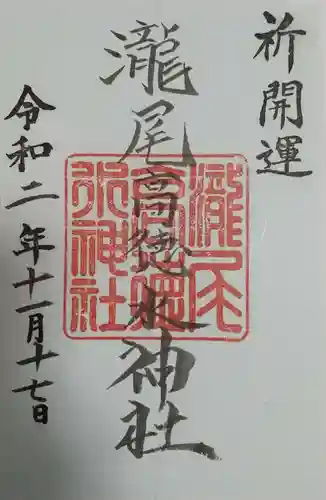 祈開運
瀧尾高徳水神社
令和二年十一月十七日
瀧尾
高徳
水神社